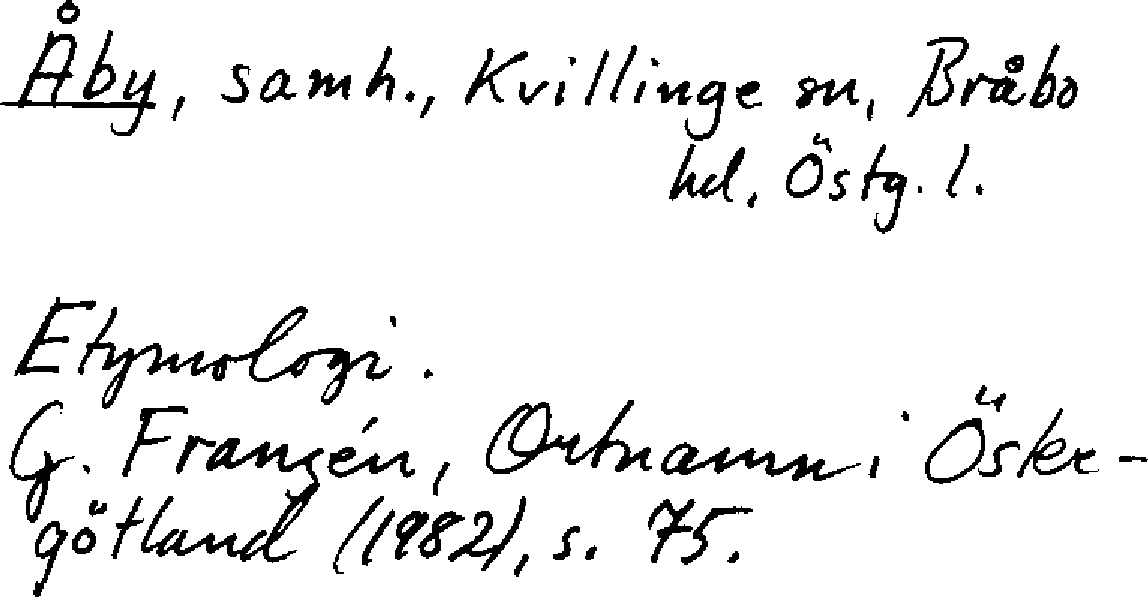 Åby, samh., Kvillinge sn, Bråbo
hd. Östg. l.
Etymologi.
G. Franzén, Ortnamn i Öster-
götland (1982), s. 75.